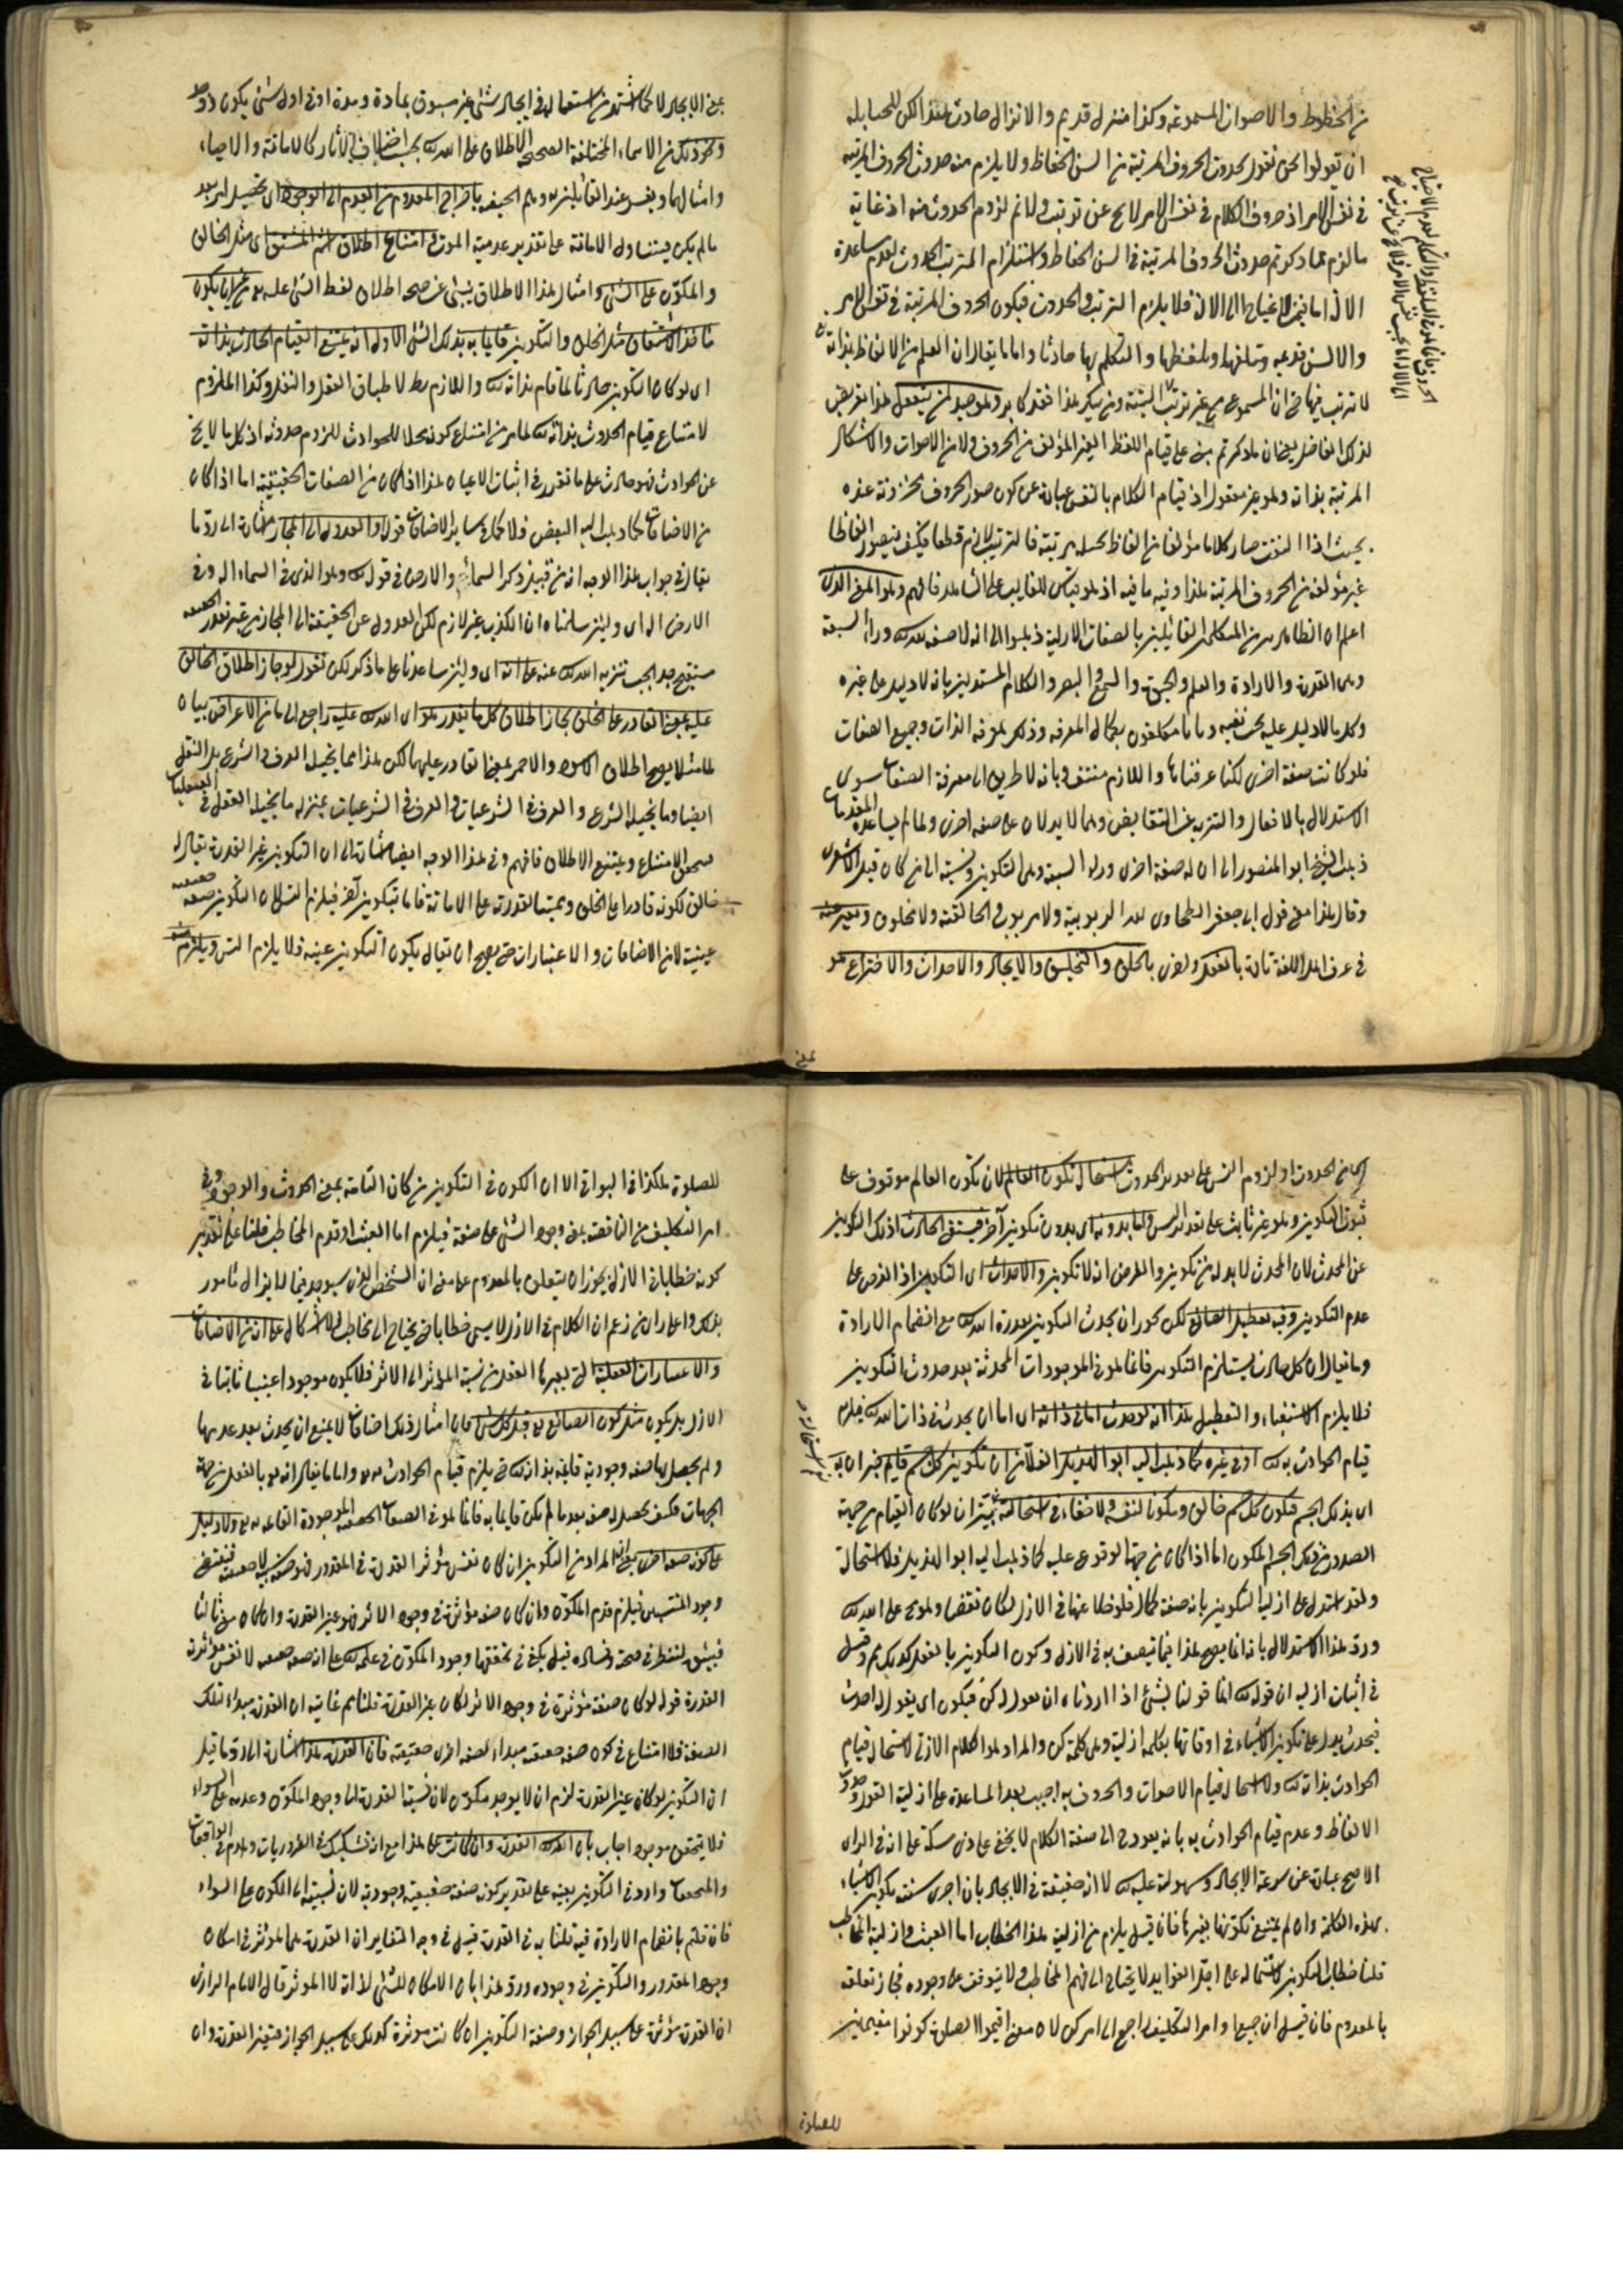 من الخطوط والاصوات المسموعة وكذا منزل قديم والانزال حادث هذا لكن للحنابلة
ان يقولوا نحن نقول بحدوث الحروف المرتبة من السن الحفاظ ولا يلزم منه حدوث الحروف المرتبة
في نفس الامر اذ حروف الكلام في نفس الامر لا يخ عن ترتب ولا نم لزوم الحدوث منه اذ غاية
ما لزم مما ذكرتم حدوث الحروف المرتبة في السن الحفاظ واستلزام المترتب الحدوث لعدم مساعدة
الآلة اما فيمن لا يحتاج الى الآلة فلا يلزم الترتب والحدوث فيكون الحروف المرتبة في نفس الامر
والالسن قديمه وتلفظها والتكلم بها حادثا واما ما يقال ان العلم من الالفاظ بذاته تع
لا ترتب فيها ان المسموع مع غير ترتب البتة ومن ينكر هذا فقد كابر وهو صيد لمن يتعقل هذا تعريض
لذلك الفاضل يعني ان ما ذكرتم مبني على قيام اللفظ الغير المؤلف من الحروف ولا من الاصوات والاشكال
المرتبة بذاته وهو غير معقول اذ قيام الكلام بالنفس عبارة عن كون صور الحروف مخزونة عنده
بحيث اذا التفت صار كلاما مؤلفا من الفاظ متخيلة مرتبة فالترتب لازم قطعا فكيف يتصور الفاظا
غير مؤلفة من الحروف المرتبة هذا وفيه ما فيه اذ هو قياس للغايب على الشاهد فافهم وهو المعنى الذى
اعلم ان الظاهر من المتكلمين القائلين بالصفات الازلية ذهبوا الى انه لا صفة لله تع وراء السبعة
وهى القدرة والارادة والعلم والحيوة والسمع والبصر والكلام مستدلين بانه لا دليل على غيره
وكل ما لا دليل عليه يجب نفيه وبانا مكلفون بكمال المعرفة وذلك بمعرفة الذات وجميع الصفات
فلو كانت صفة اخرى لكنا عرفناها واللازم منتف وبانه لا طريق الى معرفة الصفات سوى
الاستدلال بالافعال والتنزيه عن النقايص وهما لا يدلان على صفة اخرى ولما لم يساعده المقدمات
ذهب الشيخ ابو المنصور الى ان له صفة اخرى وراء السبعة وهى التكوين ونسبة الى من كان قبل الاشعرى
وقال هذا معنى قول ابى جعفر الطحاوى له الربوبية ولا مربوب والخالقية ولا مخلوق ويعبر عنه
في عرف اهل اللغة تارة بالفعل واخرى بالخلق والتخليق والايجاد والاحداث والاختراع هو
بمعنى
بمعنى الايجاد لا كما اشتهر من استعماله في ايجاد شئ غير مسبوق بمادة ومدة او في اول شئ يكون
ونحو ذلك من الاسماء المختلفة الصحيحة الاطلاق على الله تع بحسب اختلاف الآثار كالاماتة والاحياء
وامثالهما ويفسر عند القائلين به وهم الحنيفة باخراج المعدوم من العدم الى الوجود اى تحصيل امر بعد
ما لم يكن فيتناول الاماتة على تقدير عدمية الموت في امتناع اطلاق اسم المشتق اى مثل الخالق
والمكون على الشئ وامثال هذا الاطلاق ينبئ عن صحة اطلاق لفظ الشئ عليه تع من غير ان يكون
مأخذ الاشتقاق مثل الخلق والتكوين قايما به بذلك الشئ الاول انه يمتنع القيام الحادث بذاته
اى لو كان التكوين حادثا لما قام بذاته تع واللازم بط لاطباق العقل والنقل وكذا الملزوم
لامتناع قيام الحدوث بذاته تع لما مر من امتناع كونه محلا للحوادث للزوم حدوثه اذ كل ما لا يخ
عن الحوادث فهو حادث على ما تقرر في اثبات الاعيان هذا اذا كان من الصفات الحقيقية اما اذا كان
من الاضافات كما ذهب اليه البعض فلا كما في ساير الاضافات قوله والعدول الى المجاز اشارة الى رد ما
يقال في جواب هذا الوجه انه من قبيل ذكر السماء والارض في قوله تع وهو الذى في السماء اله وفى
الارض اله اى ولئن سلمناه ان الكذب غير لازم لكن العدول عن الحقيقة الى المجاز من غير تعذر الحقيقة
مستقبح جدا يجب تنزيه الله تع عنه على انه اى ولئن ساعدنا على ما ذكر لكن نقول لو جاز اطلاق الخالق
عليه بمعنى القادر على الخلق لجاز اطلاق كل ما يقدر هو اى الله تع عليه راجع الى ما من الاعراض بيان
لما مثلا يصح اطلاق الاسود والاحمر بمعنى القادر عليهما لكن هذا مما يحيله العرف والشرع بل النقل
ايضا وما يحيله الشرع والعرف في الشرعيات والعرف في الشرعيات بمنزلة ما يحيله العقل في العقليات
في الامتناع ويمتنع الاطلاق فافهم وفي هذا الوجه ايضا اشارة الى ان التكوين غير القدرة يقال له
خالق لكونه قادرا على الخلق ومميتا لقدرته على الاماتة فاما بتكوين آخر فيلزم التسلسل لان التكوين صفة حقيقية
عينية لا من الاضافات والاعتبارات حتى يصح ان يقال يكون التكوين عينه فلا يلزم التس ويلزم منه
الحدوث او لزوم التس على تقدير الحدوث استحالة تكون العالم لان تكون العالم موقوف على
ثبوت التكوين وهو غير ثابت على تقدير التس واما بدونه اى بدون تكوين آخر فيستغنى الحادث اذ ذلك التكوين
عن المحدث لان المحدث لا بد له من تكوين والمفروض انه لا تكوين والاحداث اى التكوين اذ الفرض على
عدم التكوين وفيه تعطيل الصانع لكن يجوز ان يحدث التكوين بقدرة الله تع مع انضمام الارادة
وما يقال ان كل حادث يستلزم التكوين فانما هو في الموجودات المحدثة بعد حدوث التكوين
فلا يلزم الاستغناء والتعطيل هذا انه لو حدث اما في ذاته اى اما ان يحدث في ذات الله تع فيلزم
قيام الحوادث به تع او في غيره كما ذهب اليه ابو الهذيل العلاف من ان تكوين كل جسم قايم به
اى بذلك الجسم فيكون كل جسم خالق ومكونا لنفسه ولا خفاء في استحالته ان لو كان القيام من جهة
الصدور من ذلك الجسم المكون اما اذا كان من جهة الوقوع عليه كما ذهب اليه ابو الهذيل فلا استحالة
ولقد استدل على ازلية التكوين بانه صفة كمال فلو خلا عنها في الازل لكان نقصا وهو مح على الله تع
ورد هذا الاستدلال بانه انما يصح هذا فيما يتصف به في الازل وكون التكوين بالفعل كذلك مم وقيل
في اثبات ازليته ان قوله تع انما قولنا لشئ اذا اردناه ان نقول له كن فيكون اى يقول له احدث
فيحدث يدل على تكوين الاشياء في اوقاتها بكلمة ازلية وهى كلمة كن والمراد هو الكلام الازلى لاستحالة قيام
الحوادث بذاته تع ولاستحالة قيام الاصوات والحروف به اجيب بعد المساعدة على ازلية القول وحدوث
الالفاظ وعدم قيام الحوادث به بانه يعود ح الى صفة الكلام لا يخفى على ذى مسكة على انه في الراى
الاصح عبارة عن سرعة الايجاد وسهولته عليه تع لا انه حقيقة في الايجاد بان اجرى سنته بتكوين الاشياء
بهذه الكلمة وان لم يمتنع تكونها بغيرها فان قيل يلزم من ازلية هذا الخطاب اما العبث او ازلية المخاطب
قلنا خطاب التكوين لاشتماله على اجل الفوايد لا يحتاج الى فهم المخاطب ولا يتوقف على وجوده فجاز تعلقه
بالمعدوم فان قيل ان جميعا وامر التكليف راجع الى امر كن لان معنى اقيموا الصلوة كونوا مقيمين
للصلوة
للصلوة هكذا في البواقى الا ان الكون في التكوين من كان التامة بمعنى الحدوث والوجود وفى
امر التكليف من الناقصة بمعنى وجود الشئ على صفة فيلزم اما العبث او قدم المخاطب قلنا على تقدير
كونه خطابا في الازل يجوز ان يتعلق بالمعدوم على معنى ان الشخص الذى سيوجد فيما لا يزال مأمور
بذلك واعلم ان من زعم ان الكلام في الازل لا يسمى خطابا حتى يحتاج الى مخاطب فلا اشكال على انه من الاضافات
والاعتبارات العقلية التى يعبرها العقل من نسبة المؤثر الى الاثر فلا يكون موجودا عينيا ثابتا في
الازل بل يكون مثل كون الصانع تع قبل كل شئ فان امثال ذلك اضافات لا يمتنع ان يحدث بعد عدمها
ولم يحصل بها صفة وجودية قايمة بذاته تع حتى يلزم قيام الحوادث به تع واما ما يقال انه تع بالفعل من جملة
الجهات فكيف يحصل له صفة بعد ما لم يكن قايما به فانما هو في الصفات الحقيقية الموجودة القائمة به تع ولا دليل
على كونه صفة اخرى المراد من التكوين ان كان نفس مؤثر القدرة في المقدور فهو صفة نسبية لا حقيقية فيقتضى
وجود المنتسبين فيلزم قدم المكون وان كان صفة مؤثرة في وجود الاثر فهو عين القدرة وان كان معنى ثالثا
فبينه لننظر في صحته وفساده قيل يكفى في تحققها وجود المكون في علمه تع على انه صفة حقيقية لا نفس مؤثرية
القدرة قوله لو كان صفة مؤثرة في وجود الاثر لكان عين القدرة قلنا نم غايته ان القدرة مبداء لتلك
الصفة فلا امتناع في كون صفة حقيقية مبداء لصفة اخرى حقيقية فان القدرة هذا اشارة الى رد ما قيل
ان التكوين لو كان عين القدرة لزم ان لا يوجد مكون لان نسبة القدرة الى وجود المكون وعدمه على السواء
فلا يتحقق موجود اجاب بان القدرة وان كانت على هذا مع انه تشكيك في الضروريات وهدم الواقعات
والمحققات وارد في التكوين بعينه على تقدير كونه صفة حقيقية وجودية لان نسبته الى الكون على السواء
فان قلتم بانضمام الارادة فيه قلنا به في القدرة قيل في وجه التغاير ان القدرة هى المؤثر في امكان
وجود المقدور والتكوين في وجوده ورد هذا بان الامكان للشئ لذاته لا المؤثر قال الامام الرازى
ان القدرة مؤثرة على سبيل الجواز وصفة التكوين ان كانت مؤثرة كذلك على سبيل الجواز فهى عين القدرة وان